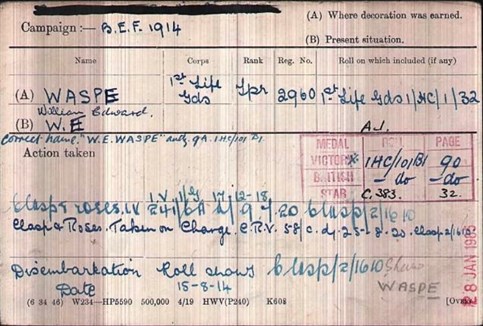 (A) Where decoration was earned.
Campaign :— B.E.F. 1914
(B) Present situation.
Name Corps Rank Reg. No. Roll on which included (if any)
(A) WASPE 1st Life Gds Tpr 2960 1st Life Gds 1/HC/1/32
William Edward.
(B) W.E A.J.
Correct name "W.E. WASPE" auth 9A. 1HC/101 B1
Action taken
MEDAL ROLL PAGE
VICTORY 1HC/101 B1 90
BRITISH — do — do —
STAR C.383. 32.
Clasp & roses. I.V. Clasp/2/1610
Clasp & Roses. Taken on Change. C.R.V. 58/C. d/- 23-8-20. Clasp/2/1610
Disembarkation Roll shows Clasp/2/1610 Shews
Date 15-8-14 WASPE
28 JAN
(6 34 46) W234—HP5590 500,000 4/19 HWV(P240) K608 [Over.